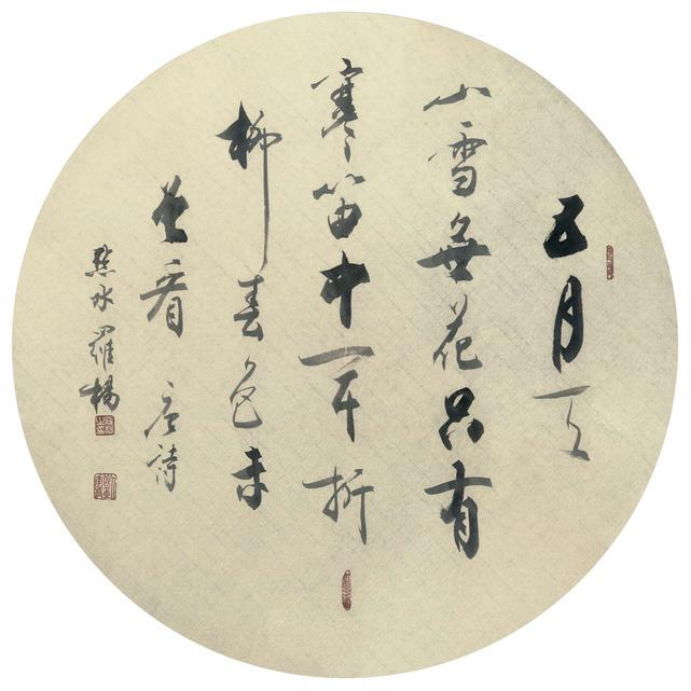 五月天
山雪無花只有
寒笛中聞折
柳春色未
曾看 唐詩
水羅楊